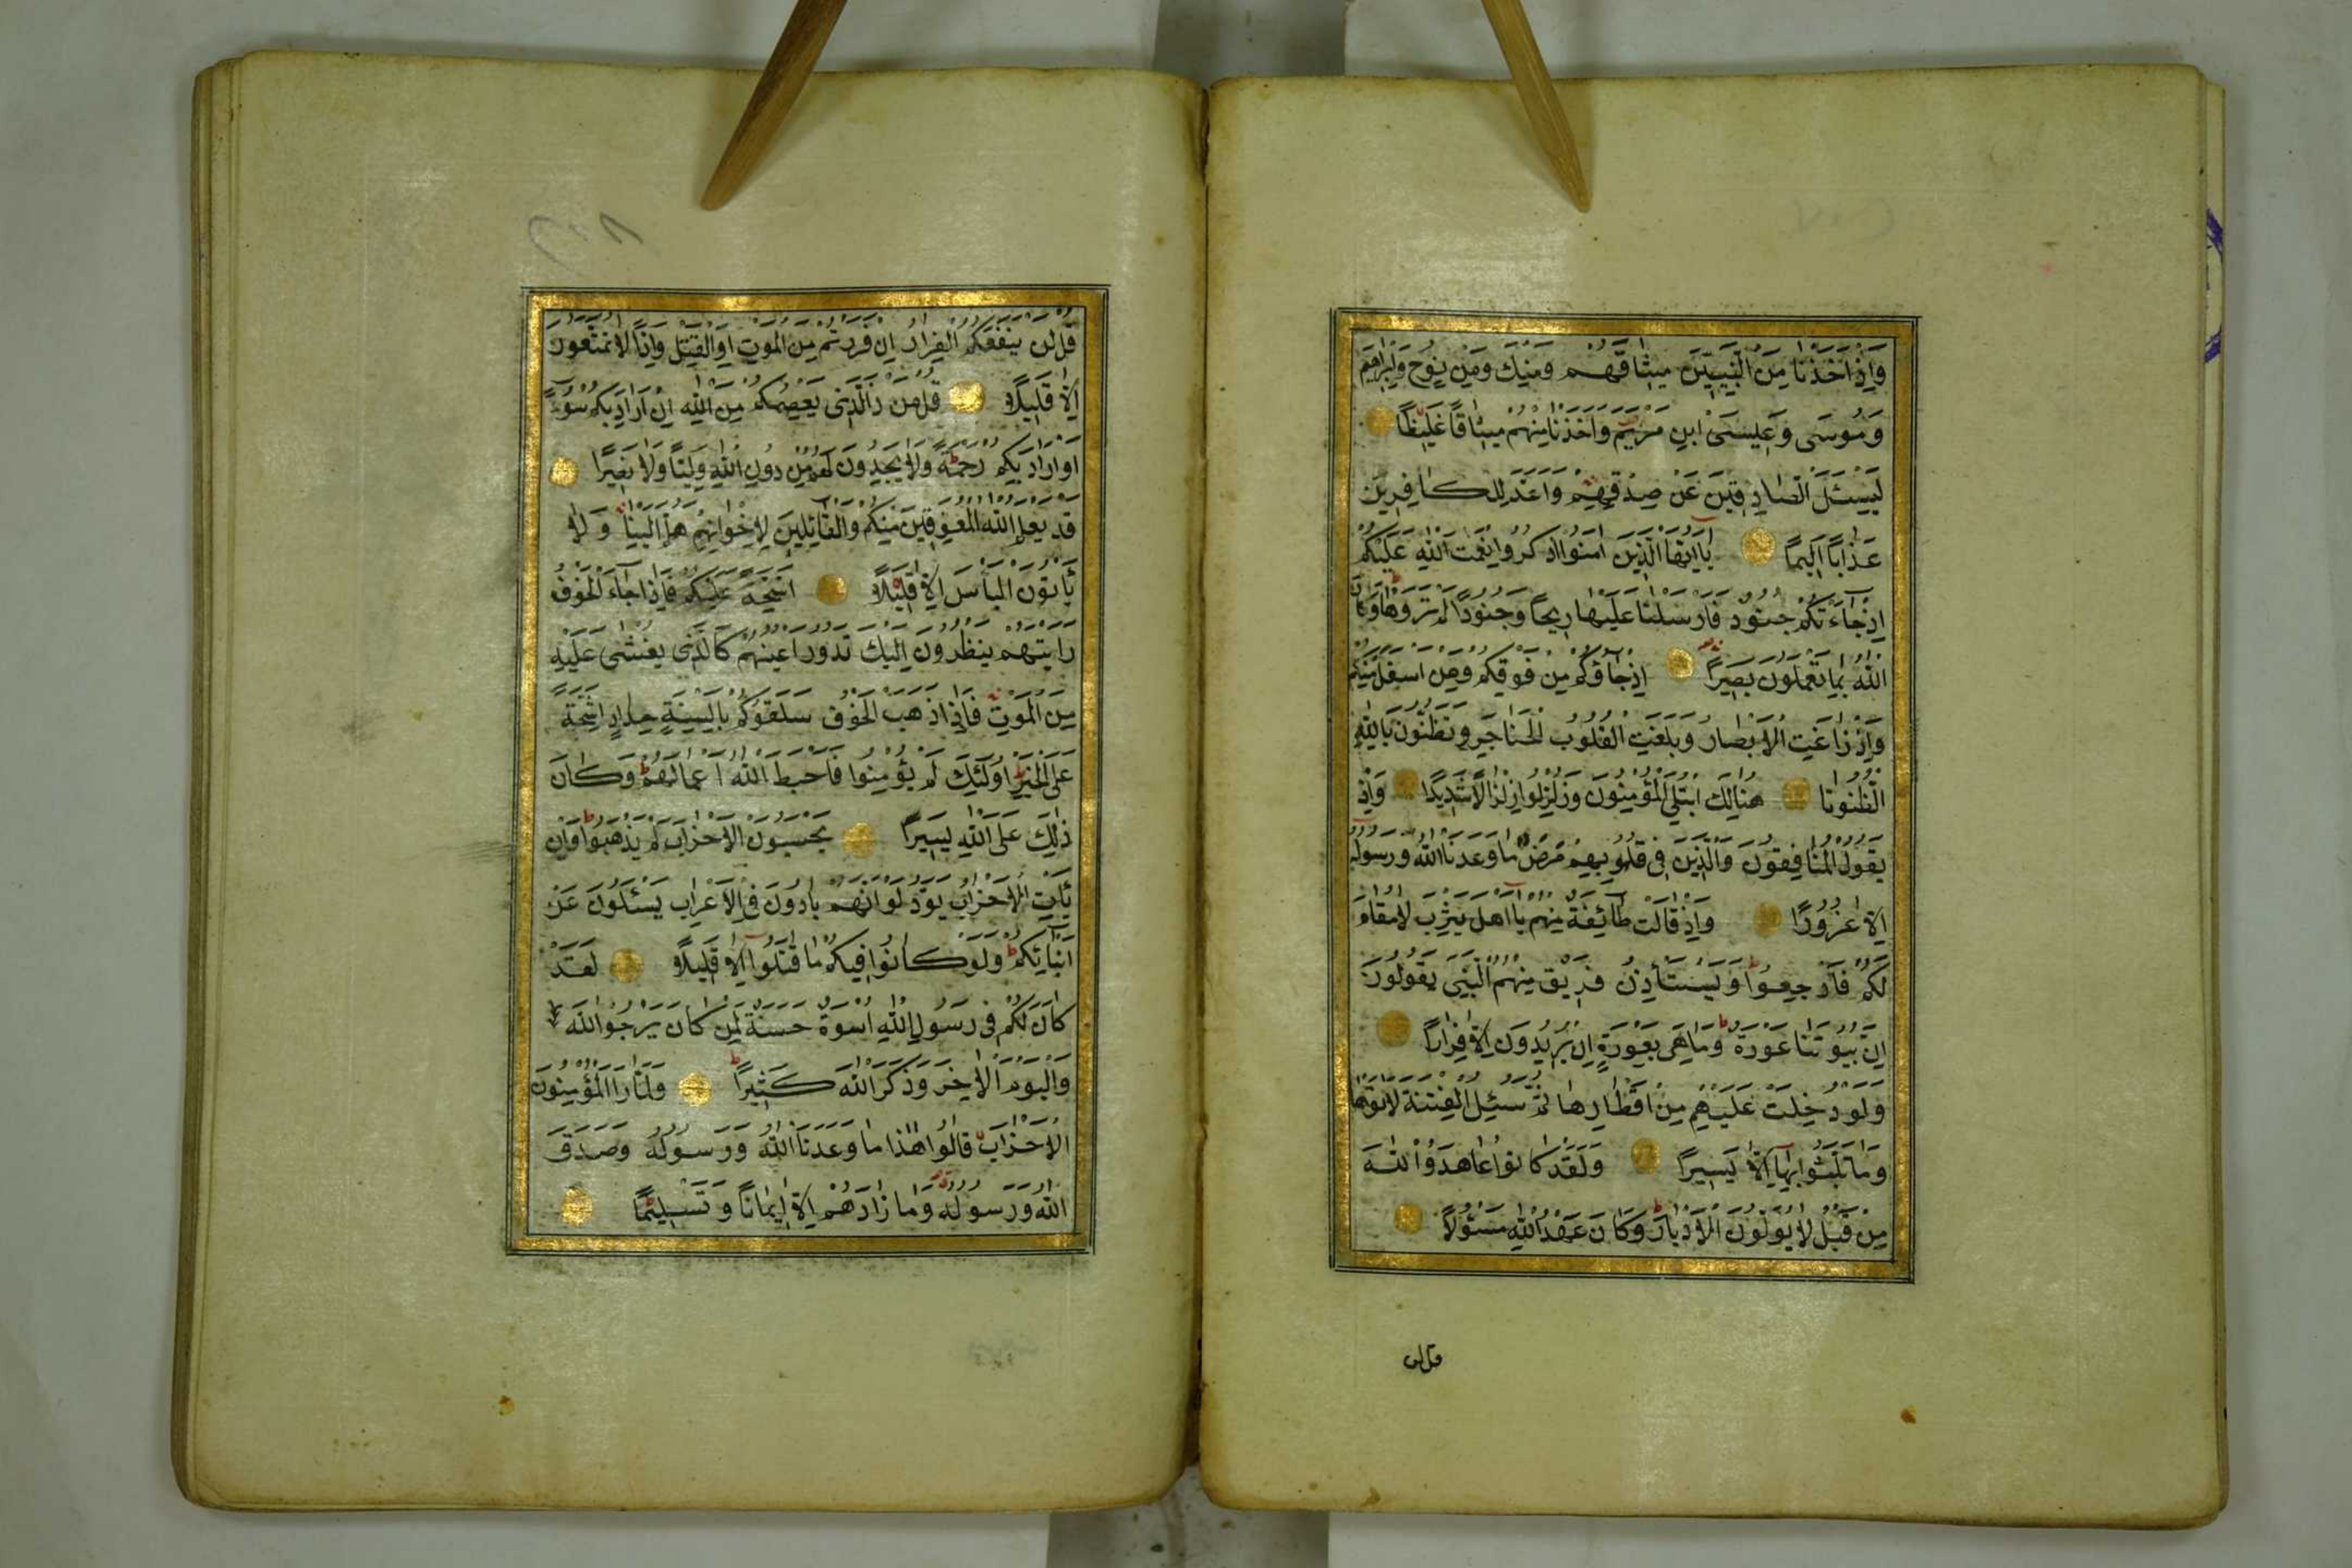 وَاِذْ اَخَذْنَا مِنَ النَّبِيّٖنَ مِيثَاقَهُمْ وَمِنْكَ وَمِنْ نُوحٍ وَاِبْرٰهِيمَ
وَمُوسٰى وَعِيسَى ابْنِ مَرْيَمَ وَاَخَذْنَا مِنْهُمْ مِيثَاقًا غَلِيظًا
لِيَسْئَلَ الصَّادِقِينَ عَنْ صِدْقِهِمْ وَاَعَدَّ لِلْكَافِرِينَ
عَذَابًا اَلِيمًا يَا اَيُّهَا الَّذِينَ اٰمَنُوا اذْكُرُوا نِعْمَتَ اللّٰهِ عَلَيْكُمْ
اِذْ جَاءَتْكُمْ جُنُودٌ فَاَرْسَلْنَا عَلَيْهِمْ رِيحًا وَجُنُودًا لَمْ تَرَوْهَا وَكَانَ
اللّٰهُ بِمَا تَعْمَلُونَ بَصِيرًا اِذْ جَاؤُكُمْ مِنْ فَوْقِكُمْ وَمِنْ اَسْفَلَ مِنْكُمْ
وَاِذْ زَاغَتِ الْاَبْصَارُ وَبَلَغَتِ الْقُلُوبُ الْحَنَاجِرَ وَتَظُنُّونَ بِاللّٰهِ
الظُّنُونَا هُنَالِكَ ابْتُلِيَ الْمُؤْمِنُونَ وَزُلْزِلُوا زِلْزَالًا شَدِيدًا وَاِذْ
يَقُولُ الْمُنَافِقُونَ وَالَّذِينَ فِي قُلُوبِهِمْ مَرَضٌ مَا وَعَدَنَا اللّٰهُ وَرَسُولُهُ
اِلَّا غُرُورًا وَاِذْ قَالَتْ طَائِفَةٌ مِنْهُمْ يَا اَهْلَ يَثْرِبَ لَا مُقَامَ
لَكُمْ فَارْجِعُوا وَيَسْتَأْذِنُ فَرِيقٌ مِنْهُمُ النَّبِيَّ يَقُولُونَ
اِنَّ بُيُوتَنَا عَوْرَةٌ وَمَا هِيَ بِعَوْرَةٍ اِنْ يُرِيدُونَ اِلَّا فِرَارًا
وَلَوْ دُخِلَتْ عَلَيْهِمْ مِنْ اَقْطَارِهَا ثُمَّ سُئِلُوا الْفِتْنَةَ لَاٰتَوْهَا
وَمَا تَلَبَّثُوا بِهَا اِلَّا يَسِيرًا وَلَقَدْ كَانُوا عَاهَدُوا اللّٰهَ
مِنْ قَبْلُ لَا يُوَلُّونَ الْاَدْبَارَ وَكَانَ عَهْدُ اللّٰهِ مَسْئُولًا
قل لن
قُلْ لَنْ يَنْفَعَكُمُ الْفِرَارُ اِنْ فَرَرْتُمْ مِنَ الْمَوْتِ اَوِ الْقَتْلِ وَاِذًا لَا تُمَتَّعُونَ
اِلَّا قَلِيلًا قُلْ مَنْ ذَا الَّذِي يَعْصِمُكُمْ مِنَ اللّٰهِ اِنْ اَرَادَ بِكُمْ سُوءًا
اَوْ اَرَادَ بِكُمْ رَحْمَةً وَلَا يَجِدُونَ لَهُمْ مِنْ دُونِ اللّٰهِ وَلِيًّا وَلَا نَصِيرًا
قَدْ يَعْلَمُ اللّٰهُ الْمُعَوِّقِينَ مِنْكُمْ وَالْقَائِلِينَ لِاِخْوَانِهِمْ هَلُمَّ اِلَيْنَا وَلَا
يَأْتُونَ الْبَأْسَ اِلَّا قَلِيلًا اَشِحَّةً عَلَيْكُمْ فَاِذَا جَاءَ الْخَوْفُ
رَاَيْتَهُمْ يَنْظُرُونَ اِلَيْكَ تَدُورُ اَعْيُنُهُمْ كَالَّذِي يُغْشٰى عَلَيْهِ
مِنَ الْمَوْتِ فَاِذَا ذَهَبَ الْخَوْفُ سَلَقُوكُمْ بِاَلْسِنَةٍ حِدَادٍ اَشِحَّةً
عَلَى الْخَيْرِ اُولٰئِكَ لَمْ يُؤْمِنُوا فَاَحْبَطَ اللّٰهُ اَعْمَالَهُمْ وَكَانَ
ذٰلِكَ عَلَى اللّٰهِ يَسِيرًا يَحْسَبُونَ الْاَحْزَابَ لَمْ يَذْهَبُوا وَاِنْ
يَأْتِ الْاَحْزَابُ يَوَدُّوا لَوْ اَنَّهُمْ بَادُونَ فِي الْاَعْرَابِ يَسْئَلُونَ عَنْ
اَنْبَائِكُمْ وَلَوْ كَانُوا فِيكُمْ مَا قَاتَلُوا اِلَّا قَلِيلًا لَقَدْ
كَانَ لَكُمْ فِي رَسُولِ اللّٰهِ اُسْوَةٌ حَسَنَةٌ لِمَنْ كَانَ يَرْجُوا اللّٰهَ
وَالْيَوْمَ الْاٰخِرَ وَذَكَرَ اللّٰهَ كَثِيرًا وَلَمَّا رَاَ الْمُؤْمِنُونَ
الْاَحْزَابَ قَالُوا هٰذَا مَا وَعَدَنَا اللّٰهُ وَرَسُولُهُ وَصَدَقَ
اللّٰهُ وَرَسُولُهُ وَمَا زَادَهُمْ اِلَّا اِيمَانًا وَتَسْلِيمًا